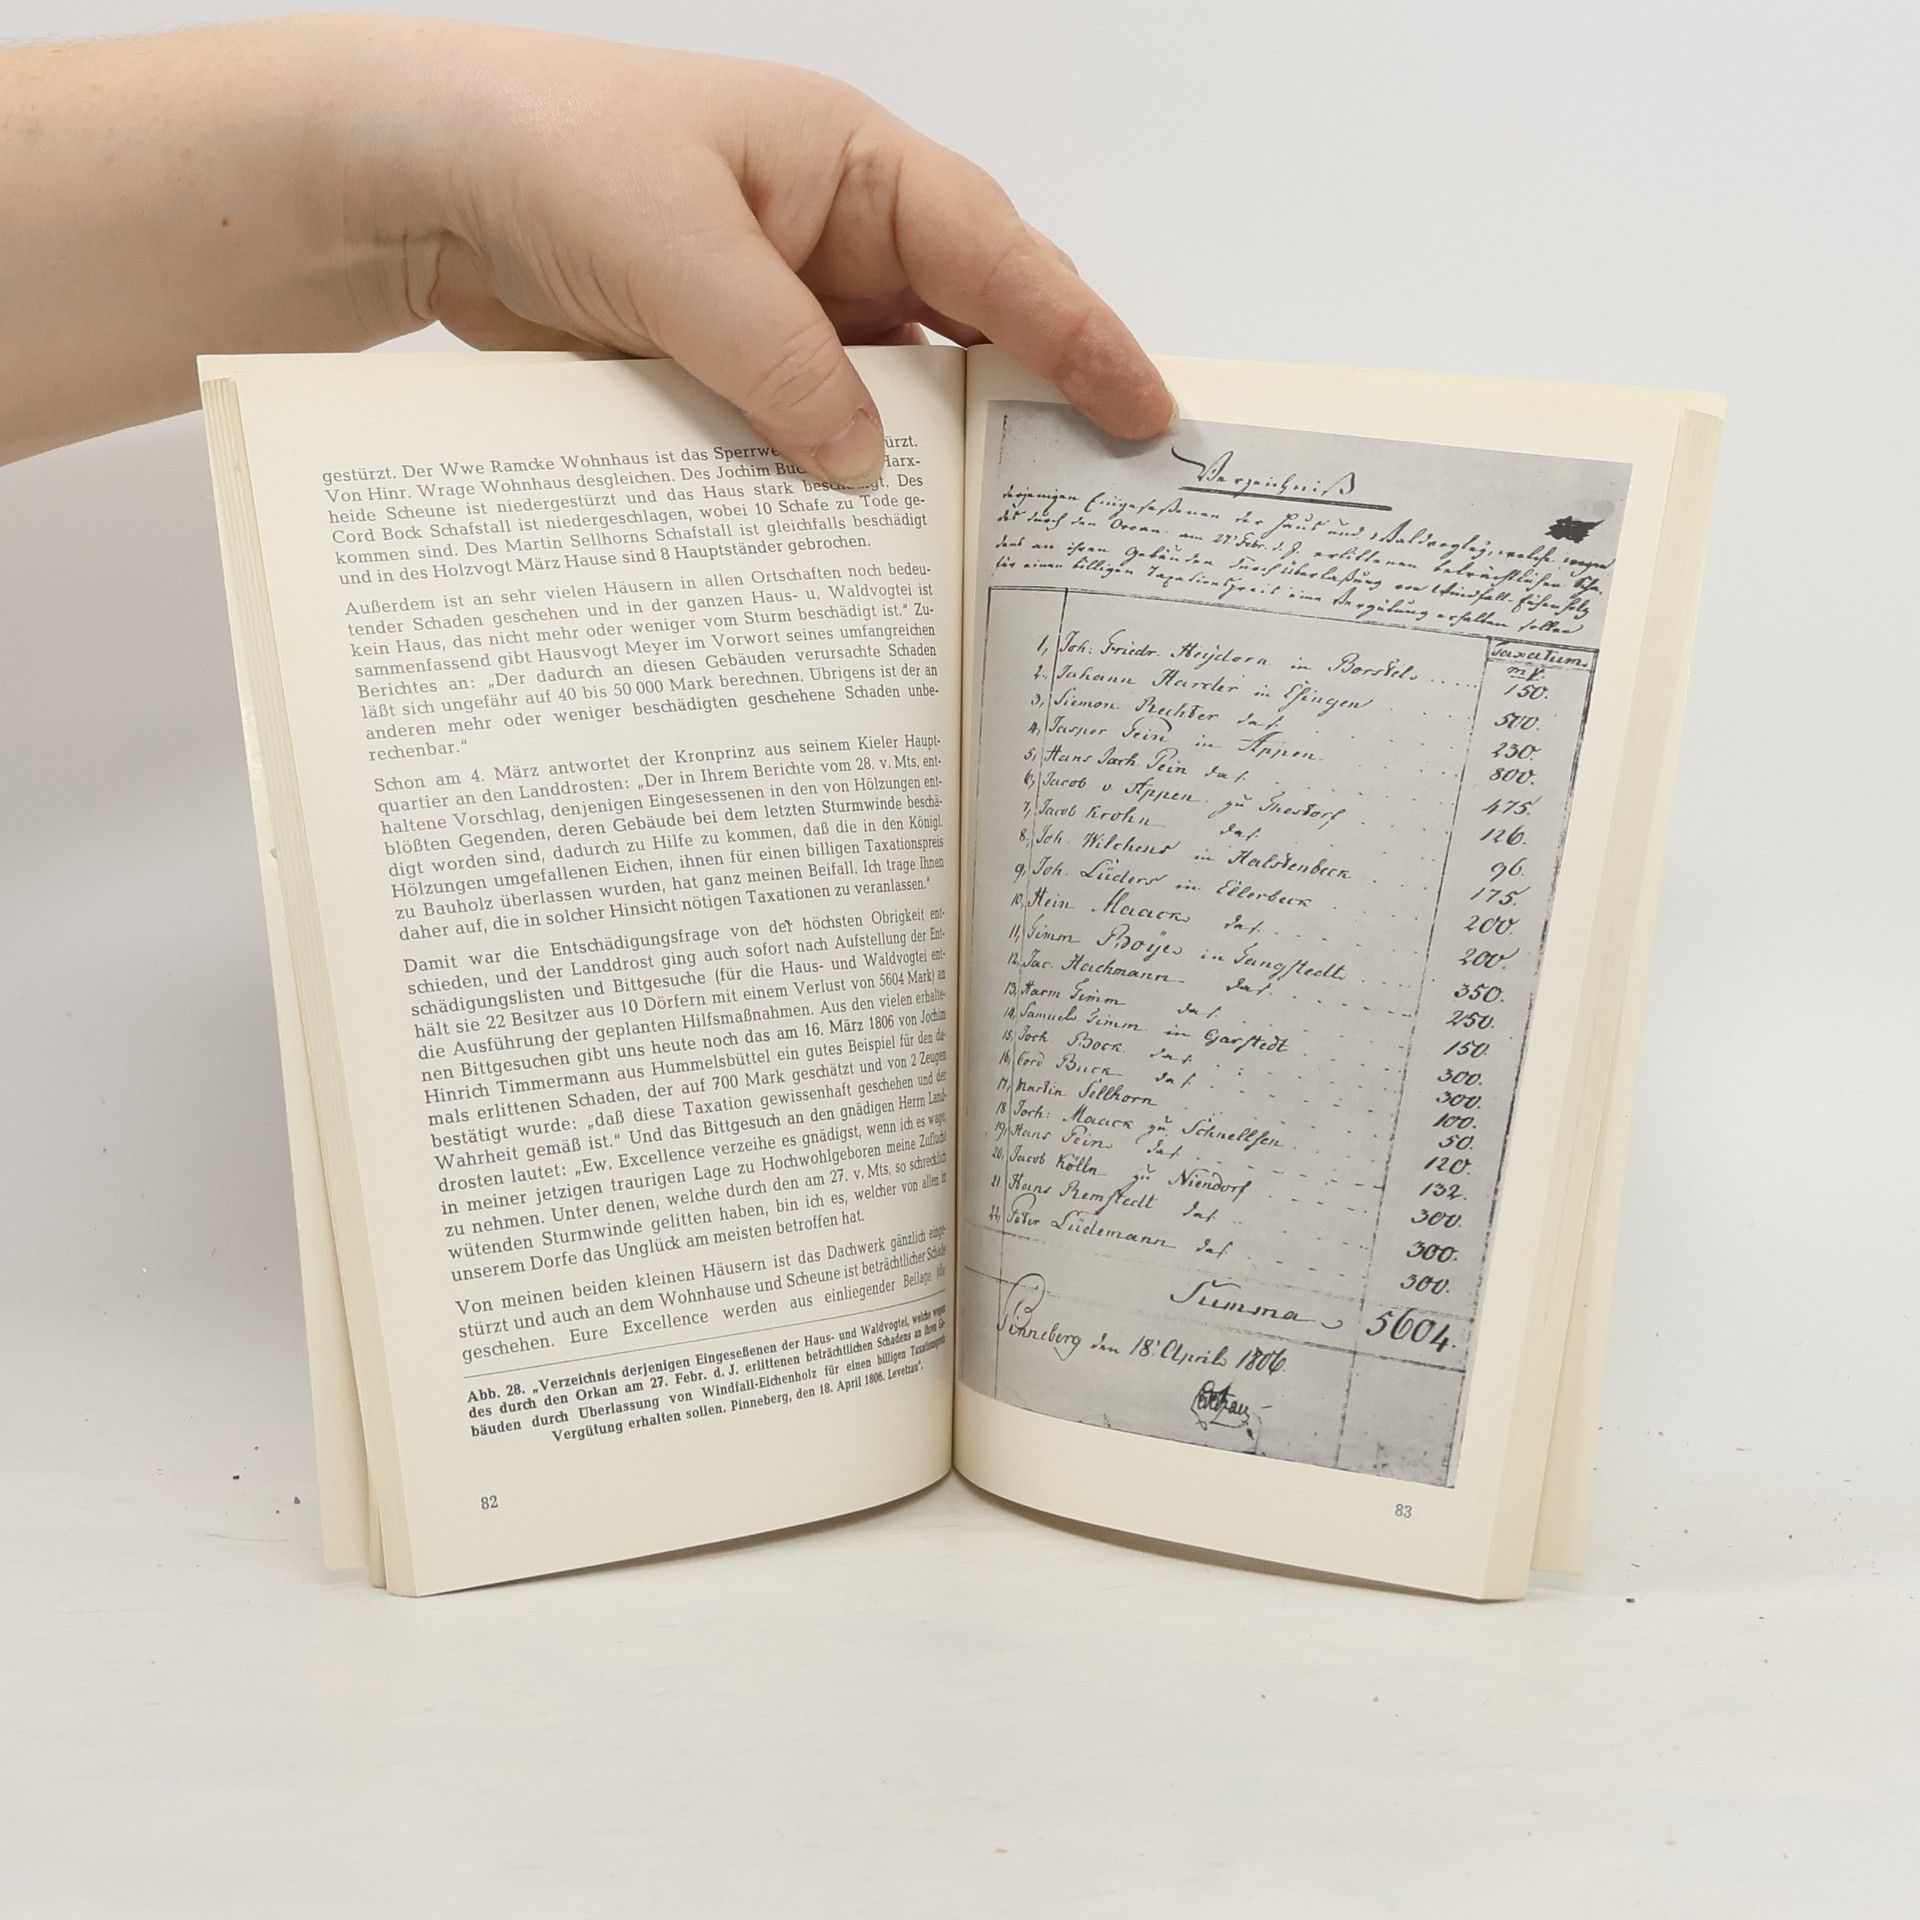 gestürzt. Der Wwe Ramcke Wohnhaus ist das ürzt.
Von Hinr. Wrage Wohnhaus desgleichen. Des Jochim Harx-
heide Scheune ist niedergestürzt und das Haus stark Des
Cord Bock Schafstall ist niedergeschlagen, wobei 10 Schafe zu Tode ge-
kommen sind. Des Martin Sellhorns Schafstall ist gleichfalls beschädigt
und in des Holzvogt März Hause sind 8 Hauptständer gebrochen.
Außerdem ist an sehr vielen Häusern in allen Ortschaften noch bedeu-
tender Schaden geschehen und in der ganzen Haus- u. Waldvogtei ist
kein Haus, das nicht mehr oder weniger vom Sturm beschädigt ist.“ Zu-
sammenfassend gibt Hausvogt Meyer im Vorwort seines umfangreichen
Berichtes an: „Der dadurch an diesen Gebäuden verursachte Schaden
läßt sich ungefähr auf 40 bis 50 000 Mark berechnen. Übrigens ist der an
anderen mehr oder weniger beschädigten geschehene Schaden unbe-
rechenbar.“
Schon am 4. März antwortet der Kronprinz aus seinem Kieler Haupt-
quartier an den Landdrosten: „Der in Ihrem Berichte vom 28. v. Mts. ent-
haltene Vorschlag, denjenigen Eingesessenen in den von Hölzungen ent-
blößten Gegenden, deren Gebäude bei dem letzten Sturmwinde beschä-
digt worden sind, dadurch zu Hilfe zu kommen, daß die in den Königl.
Hölzungen umgefallenen Eichen, ihnen für einen billigen Taxationspreis
zu Bauholz überlassen wurden, hat ganz meinen Beifall. Ich trage Ihnen
daher auf, die in solcher Hinsicht nötigen Taxationen zu veranlassen.“
Damit war die Entschädigungsfrage von der höchsten Obrigkeit ent-
schieden, und der Landdrost ging auch sofort nach Aufstellung der Ent-
schädigungslisten und Bittgesuche (für die Haus- und Waldvogtei ent-
hält sie 22 Besitzer aus 10 Dörfern mit einem Verlust von 5604 Mark) an
die Ausführung der geplanten Hilfsmaßnahmen. Aus den vielen erhalte-
nen Bittgesuchen gibt uns heute noch das am 16. März 1806 von Jochim
Hinrich Timmermann aus Hummelsbüttel ein gutes Beispiel für den da-
mals erlittenen Schaden, der auf 700 Mark geschätzt und von 2 Zeugen
bestätigt wurde: „daß diese Taxation gewissenhaft geschehen und der
Wahrheit gemäß ist.“ Und das Bittgesuch an den gnädigen Herrn Land-
drosten lautet: „Ew. Excellence verzeihe es gnädigst, wenn ich es wage,
in meiner jetzigen traurigen Lage zu Hochwohlgeboren meine Zuflucht
zu nehmen. Unter denen, welche durch den am 27. v. Mts. so schrecklich
wütenden Sturmwinde gelitten haben, bin ich es, welcher von allen in
unserem Dorfe das Unglück am meisten betroffen hat.
Von meinen beiden kleinen Häusern ist das Dachwerk gänzlich einge-
stürzt und auch an dem Wohnhause und Scheune ist beträchtlicher Schade
geschehen. Eure Excellence werden aus einliegender Beilage
Abb. 28. „Verzeichnis derjenigen Eingeseßenen der Haus- und Waldvogtei, welche wegen
des durch den Orkan am 27. Febr. d. J. erlittenen beträchtlichen Schadens an ihren Ge-
bäuden durch Überlassung von Windfall-Eichenholz für einen billigen Taxationspreis
Vergütung erhalten sollen. Pinneberg, den 18. April 1806. Levetzau“.
82
Verzeichniß
derjenigen Eingeseßenen der Haus und Waldvogtey, welche wegen
des durch den Orcan am 27. Febr. d. J. erlittenen beträchtlichen Scha-
dens an ihren Gebäuden durch Überlaßung von Windfall-Eichenholz
für einen billigen Taxationspreis eine Vergütung erhalten sollen
Taxatum.
1, Joh: Friedr. Heydorn in Borstel 150.
2. Johann Harder in Eßingen 500.
3, Siemon Rechter das. 230.
4, Jasper Pein in Appen 800.
5, Hans Joch. Pein das. 475.
6, Jacob v. Appen zu Thesdorf 126.
7, Jacob Krohn das. 96.
8, Joh. Wilchens in Halstenbeck 175.
9, Joh. Lüders in Ellerbeck 200.
10, Hein Maack das. 200.
11, Timm Böye in Langstedt 350.
12, Jac. Hachmann das. 250.
13, Harm Timm das. 150.
14, Samuel Timm in Garstedt 300.
15, Joch. Bock das. 300.
16, Cord Buck das. 100.
17, Martin Sellhorn 50.
18, Joch: Maack zu Schnellsen 120.
19, Hans Pein das. 132.
20, Jacob Kölln zu Niendorf 300.
21, Hans Remstedt das. 300.
22, Peter Lüdemann das. 300.
Summa 5604.
Pinneberg den 18. April 1806.
Levetzau
83